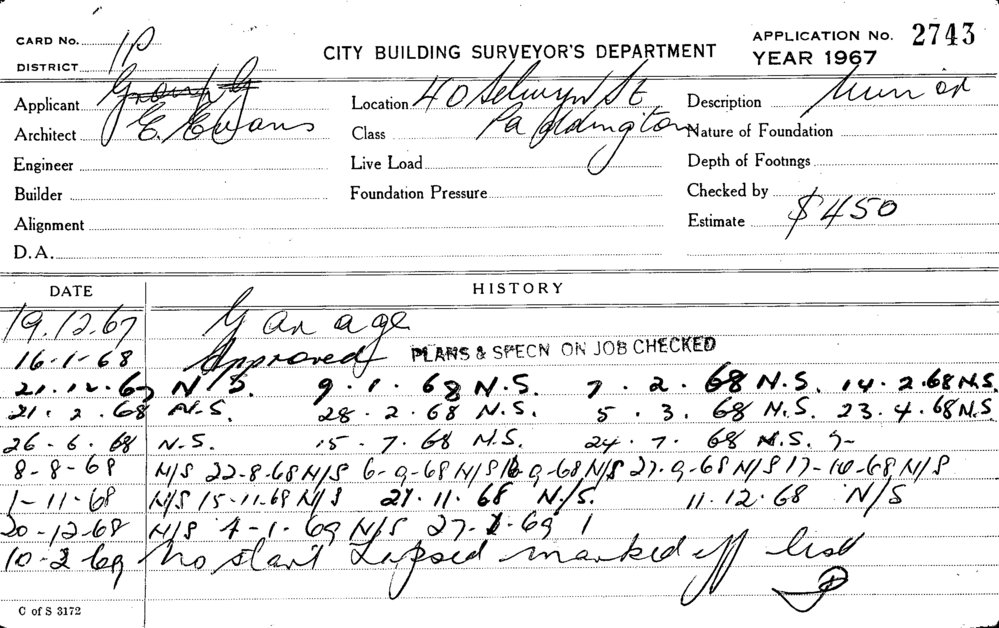 CARD No. 1P
DISTRICT
CITY BUILDING SURVEYOR'S DEPARTMENT
APPLICATION No. 2743
YEAR 1967
Applicant
Architect E. Evans
Engineer
Builder
Alignment
D.A.
Location 40 Selwyn St
Class Paddington
Live Load
Foundation Pressure
Description
Nature of Foundation
Depth of Footings
Checked by
Estimate $450
DATE HISTORY
19.12.67 Garage
16-1-68 Approved PLANS & SPECN ON JOB CHECKED
21.12.67 N/S. 9.1.68 N.S. 7.2.68 N.S. 14.2.68 N.S.
21.2.68 N.S. 28.2.68 N.S. 5.3.68 N.S. 23.4.68 N.S
26.6.68 N.S. 15.7.68 N.S. 24.7.68 N.S. 7-
8-8-68 N/S 22-8-68 N/S 6-9-68 N/S 16-9-68 N/S 27-9-68 N/S 17-10-68 N/S
1-11-68 N/S 15-11-68 N/S 27.11.68 N/S. 11.12.68 N/S
20-12-68 N/S 4-1-69 N/S 27-1-69 1
10-2-69 No start Lapsed marked off list
C of S 3172